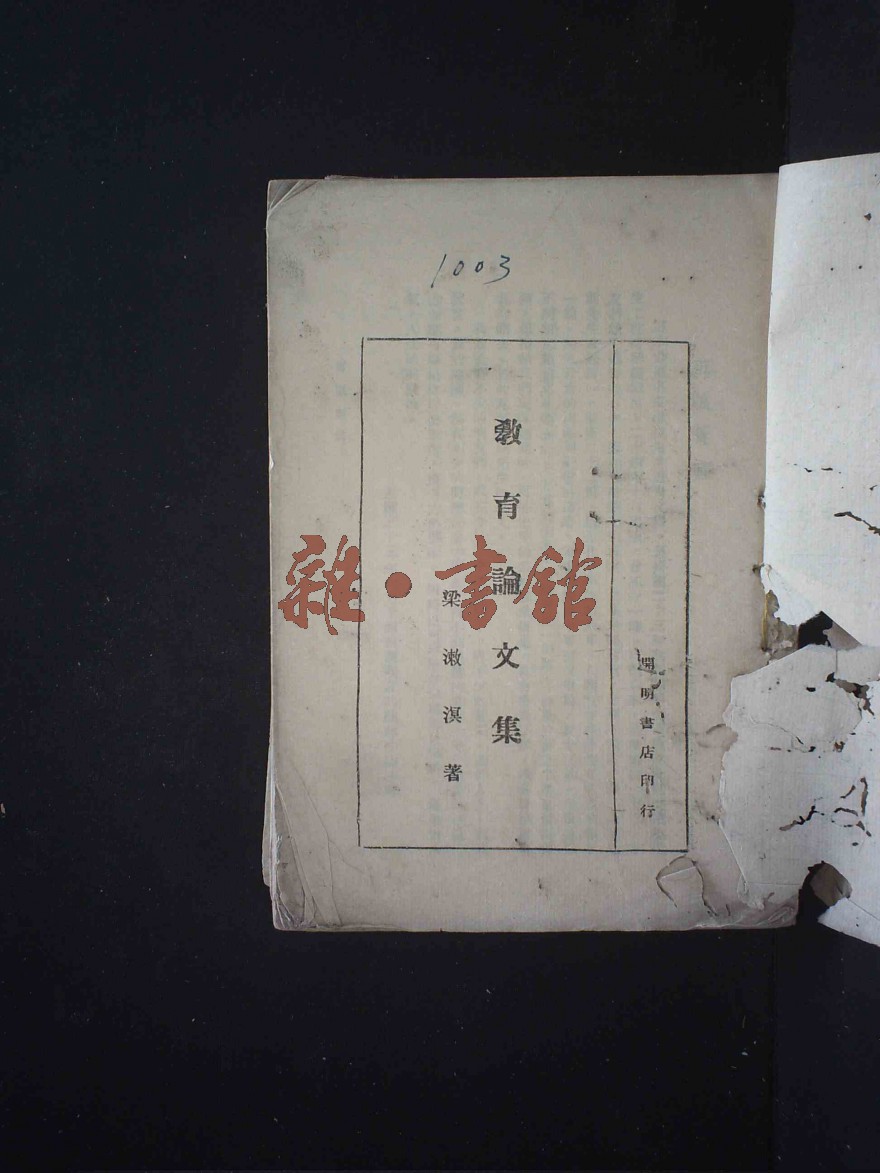 1003
開明書店印行
教育論文集
梁漱溟著
雜·書館